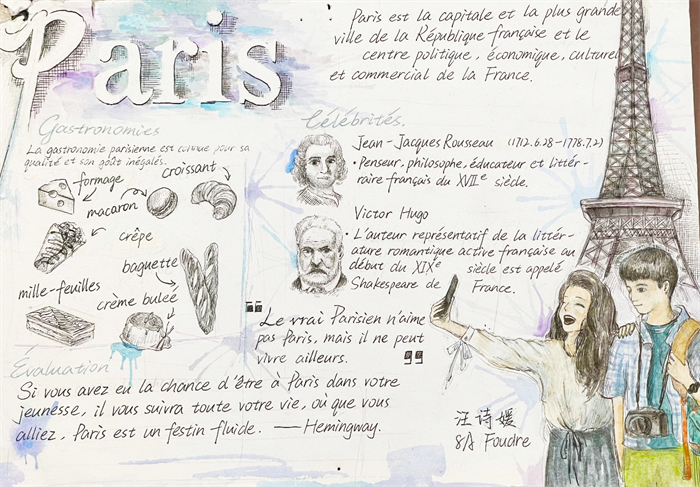 Paris
Paris est la capitale et la plus grande
ville de la République française et le
centre politique, économique, culturel
et commercial de la France.
Gastronomies
La gastronomie parisienne est connue pour sa
qualité et son goût inégalés.
formage
croissant
macaron
crêpe
baguette
mille-feuilles
crème bulée
Célébrités.
Jean-Jacques Rousseau (1712.6.28-1778.7.2)
·Penseur, philosophe, éducateur et littér-
raire français du XVIIe siècle.
Victor Hugo
·L'auteur représentatif de la littér-
ature romantique active française au
début du XIXe siècle est appelé
Shakespeare de France.
"Le vrai Parisien n'aime
pas Paris, mais il ne peut
vivre ailleurs."
Évaluation
Si vous avez eu la chance d'être à Paris dans votre
jeunesse, il vous suivra toute votre vie, où que vous
alliez, Paris est un festin fluide. — Hemingway.
汪诗媛
8A Foudre